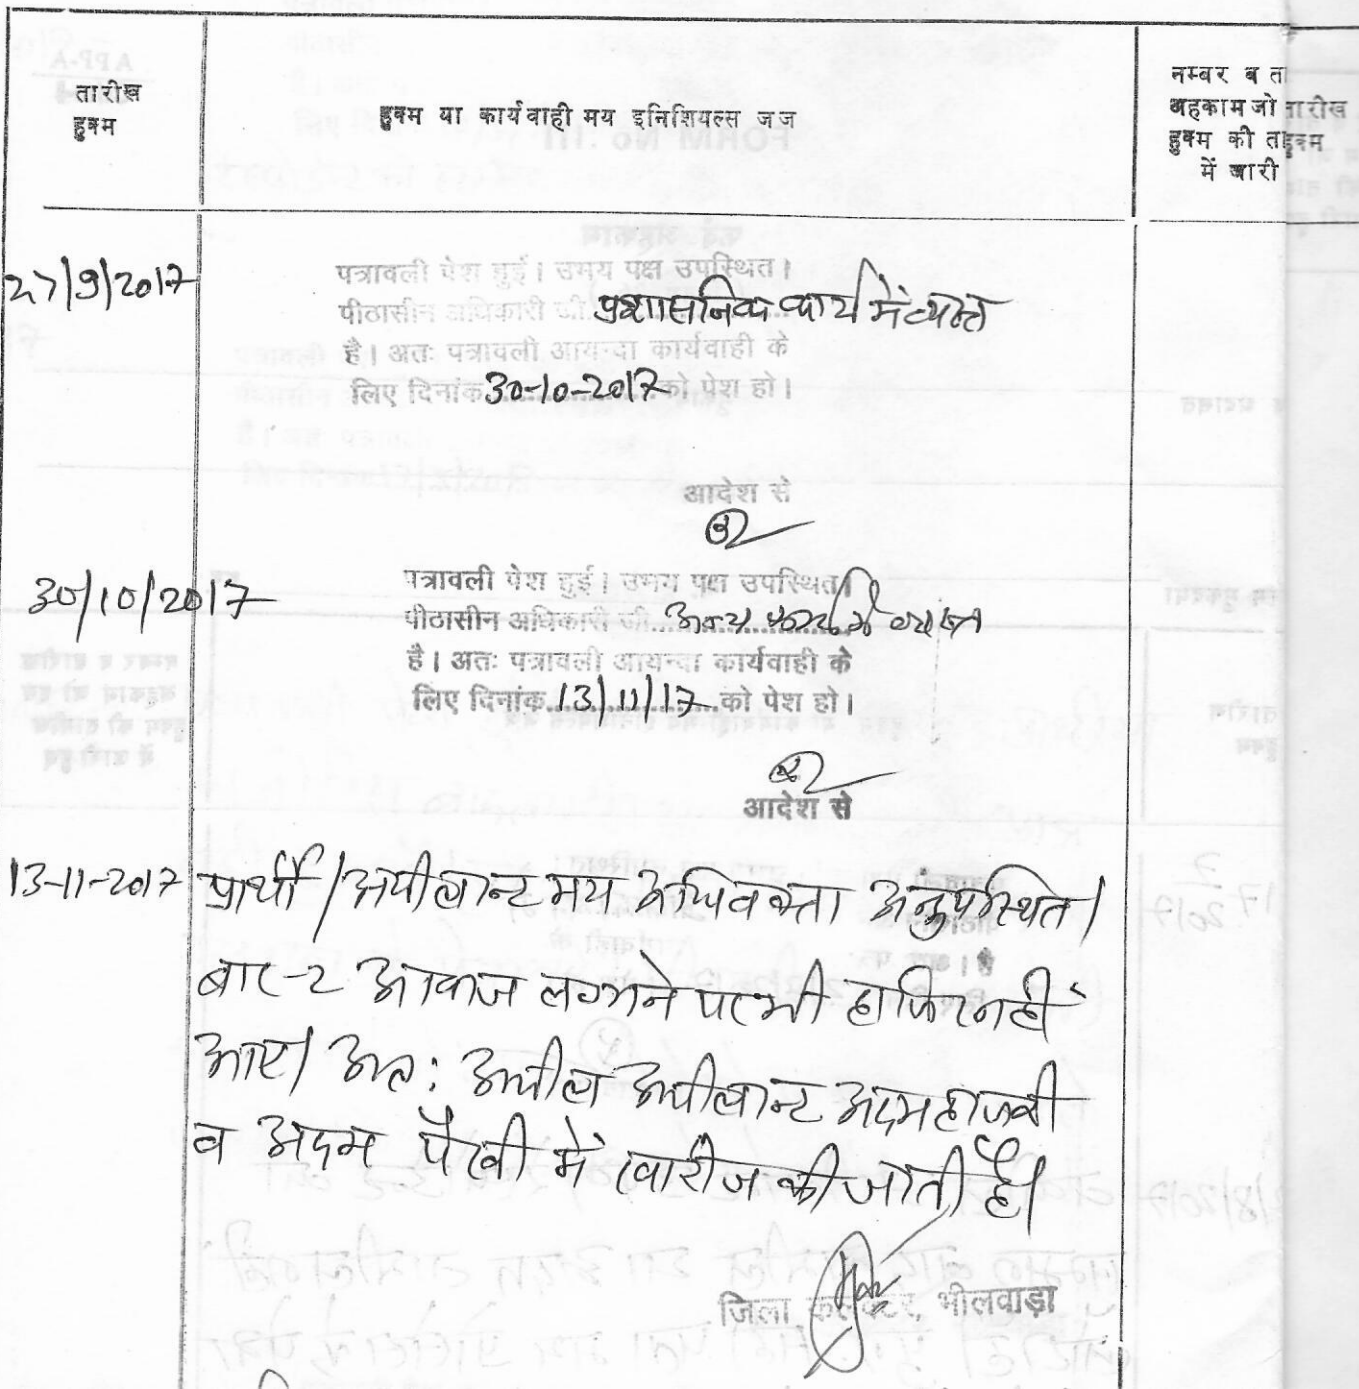 तारीख
हुक्म
हुक्म या कार्यवाही मय इनिशियल्स जज
नम्बर व ता
अहकाम जो तारीख
हुक्म की ता हुक्म
में जारी
27/9/2017
पत्रावली पेश हुई। उभय पक्ष उपस्थित।
पीठासीन अधिकारी जी प्रशासनिक कार्य में व्यस्त
है। अतः पत्रावली आयन्दा कार्यवाही के
लिए दिनांक 30-10-2017 को पेश हो।
आदेश से
30/10/2017
पत्रावली पेश हुई। उभय पक्ष उपस्थित।
पीठासीन अधिकारी जी अन्य कार्य में व्यस्त
है। अतः पत्रावली आयन्दा कार्यवाही के
लिए दिनांक 13/11/17 को पेश हो।
आदेश से
13-11-2017
प्रार्थी/अपीलान्ट मय अधिवक्ता अनुपस्थित।
बार-2 आवाज लगाने पर भी हाजिर नहीं
आए। अतः अपील अपीलान्ट अदम हाजरी
व अदम पैरवी में खारीज की जाती है।
जिला कलेक्टर, भीलवाड़ा